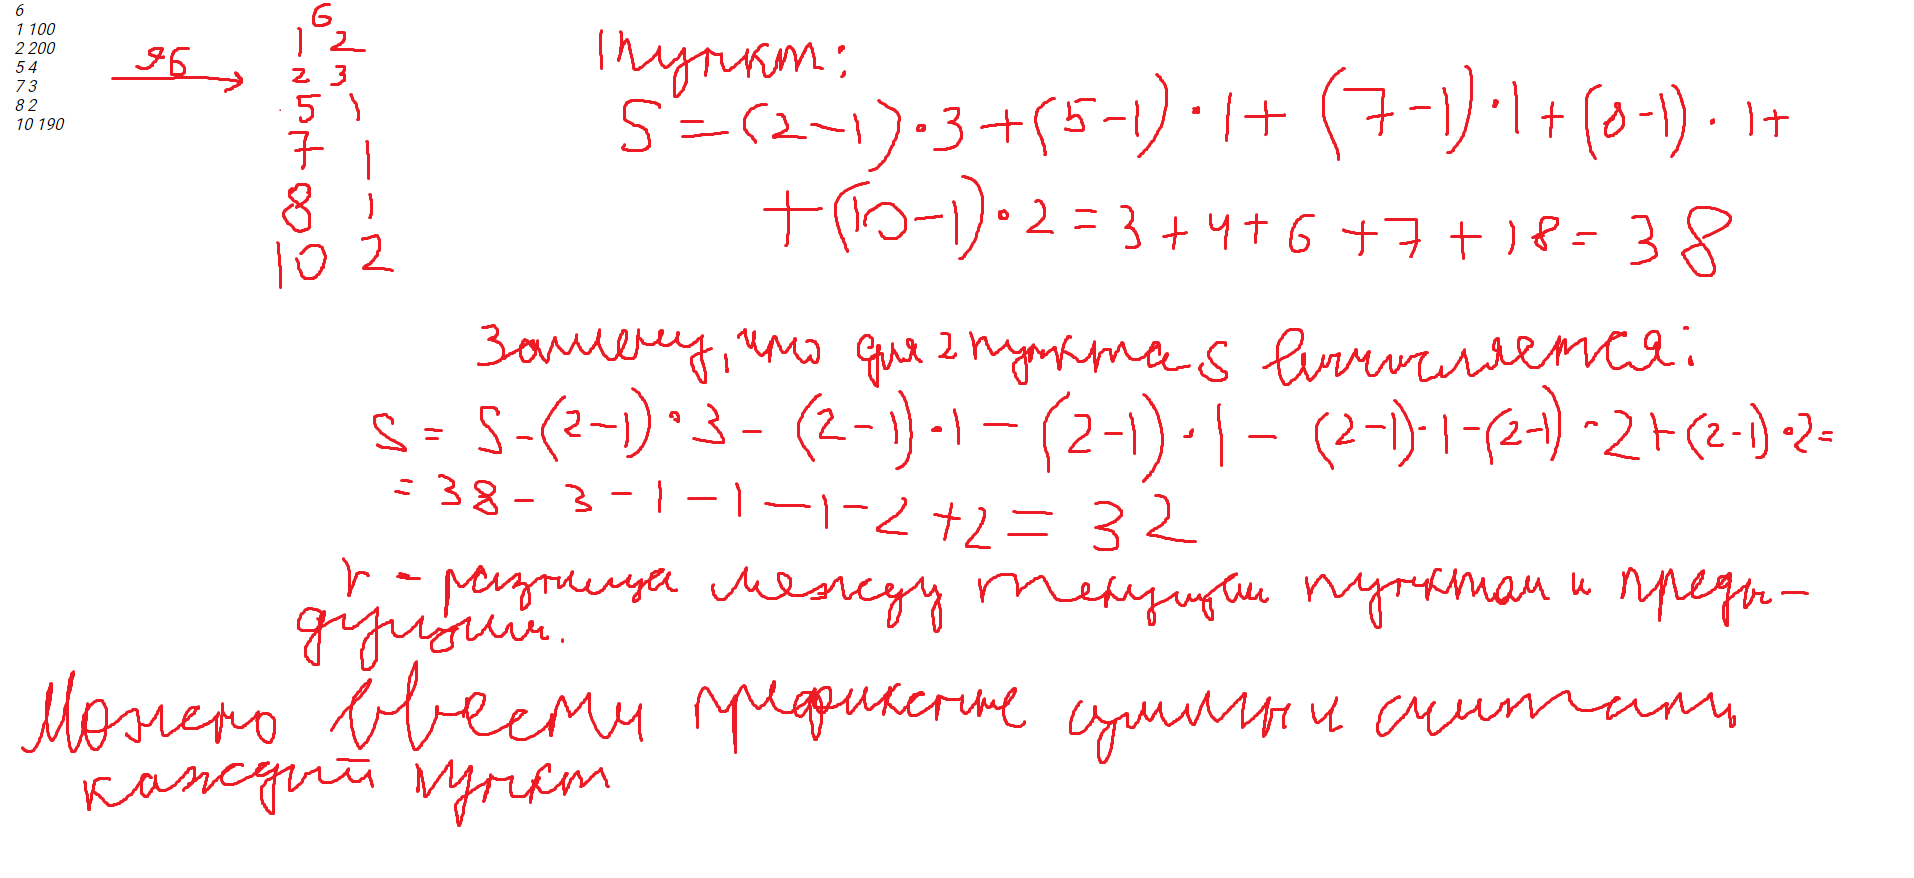 6
1 100
2 200
5 4
7 3
8 2
10 190
96
6
1 2
2 3
5 1
7 1
8 1
10 2
1 пункт:
S = (2-1)·3+(5-1)·1+(7-1)·1+(8-1)·1+
+(10-1)·2=3+4+6+7+18=38
Замечу, что для 2 пункта S вычисляется:
S = S-(2-1)·3-(2-1)·1-(2-1)·1-(2-1)·1-(2-1)·2+(2-1)·2=
=38-3-1-1-1-2+2=32
r - разница между текущим пунктом и преды-
дущим.
Можно ввести префиксные суммы и считать
каждый пункт